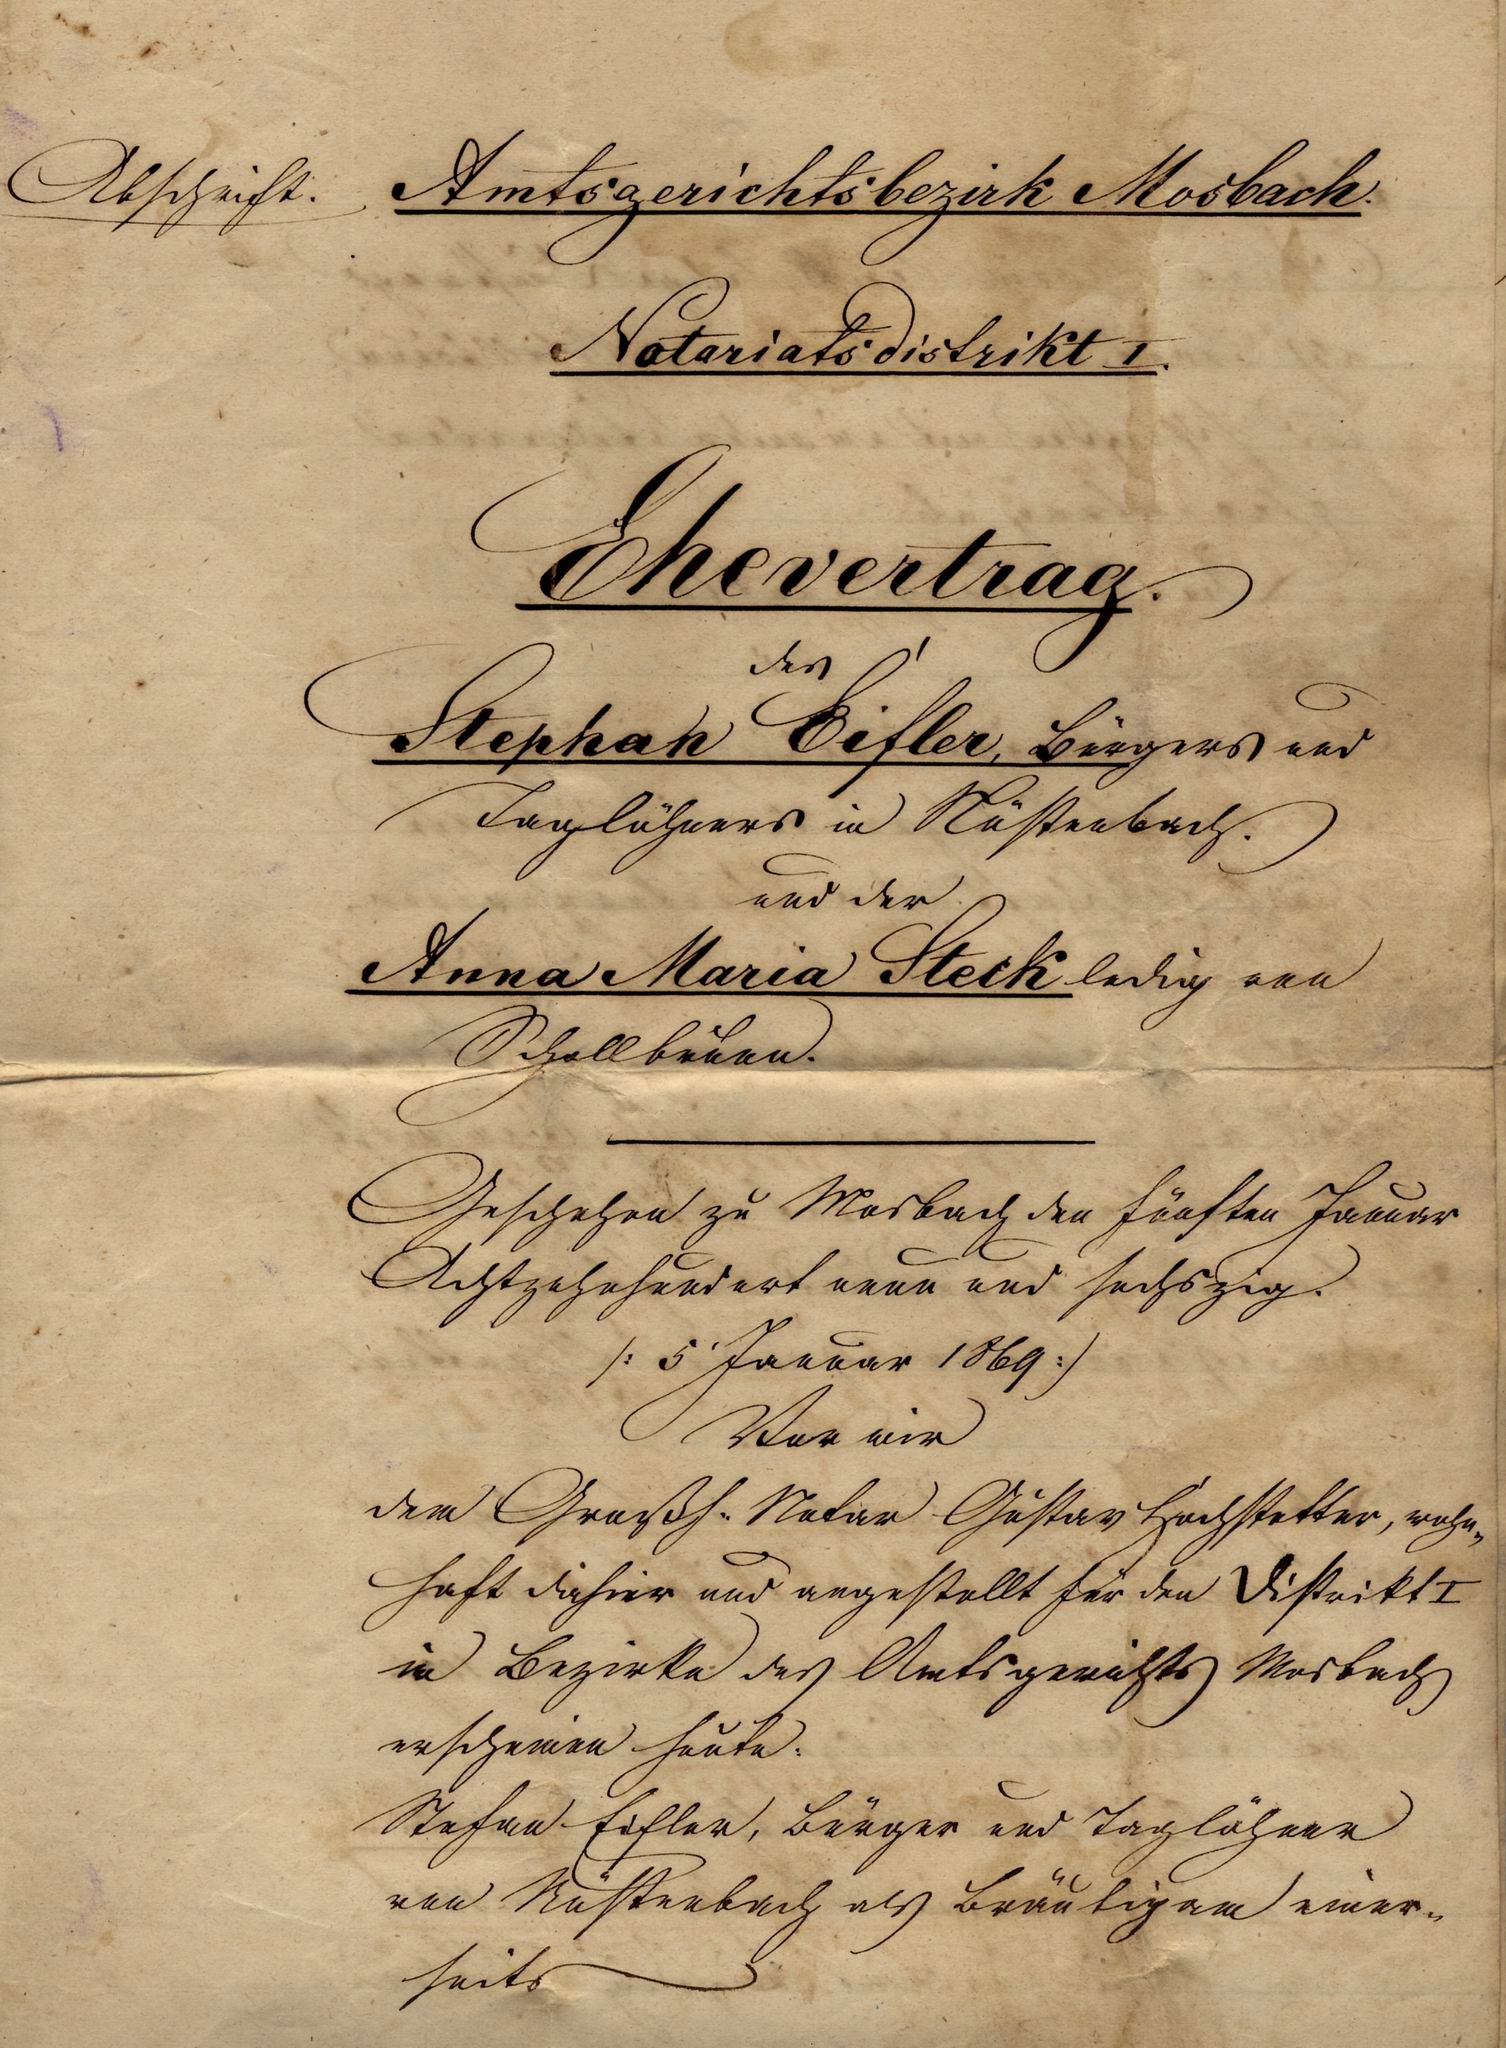 Abschrift.
Amtsgerichtsbezirk Mosbach.
Notariatsdistrikt I.
Ehevertrag.
des
Stephan Eifler, Bürgers und
Taglöhners in Nüstenbach.
und der
Anna Maria Steck ledig von
Schollbrunn.
Geschehen zu Mosbach den fünften Januar
Achtzehnhundert neun und sechszig.
/: 5 Januar 1869 :/
Vor mir
dem Großh. Notar Gustav Hochstetter, wohn-
haft dahier und angestellt für den Distrikt I
im Bezirke des Amtsgerichts Mosbach
erscheinen heute:
Stefan Eifler, Bürger und Taglöhner
von Nüstenbach als Bräutigam einer-
seits